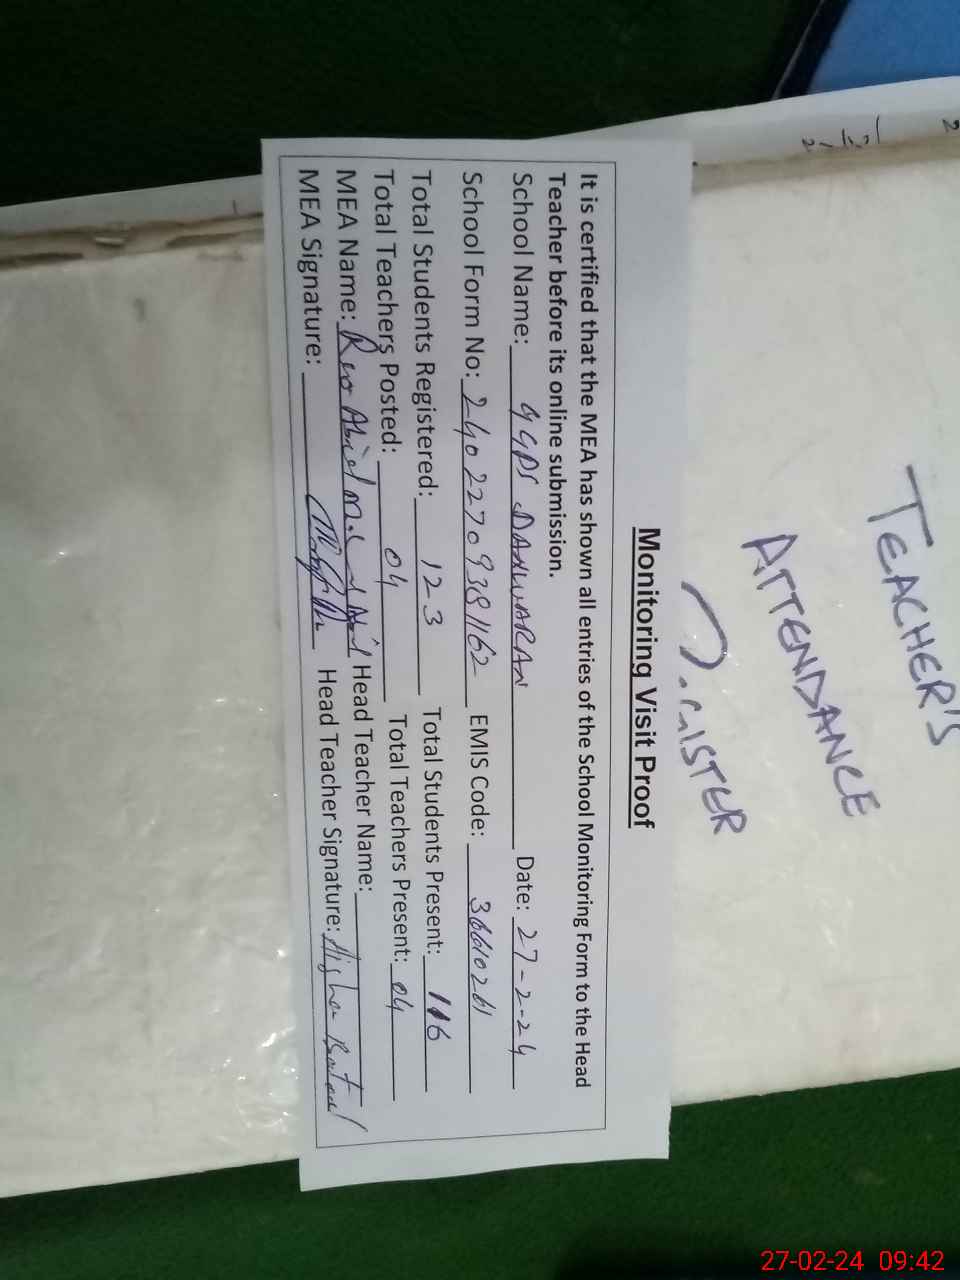 TEACHER'S
ATTENDANCE
Monitoring Visit Proof
It is certified that the MEA has shown all entries of the School Monitoring Form to the Head
Teacher before its online submission.
School Name: GGPS DANWARAN Date: 27-2-24
School Form No: 24022709381162 EMIS Code: 36610261
Total Students Registered: 123 Total Students Present: 116
Total Teachers Posted: 04 Total Teachers Present: 04
MEA Name: Head Teacher Name:
MEA Signature: Head Teacher Signature:
27-02-24 09:42